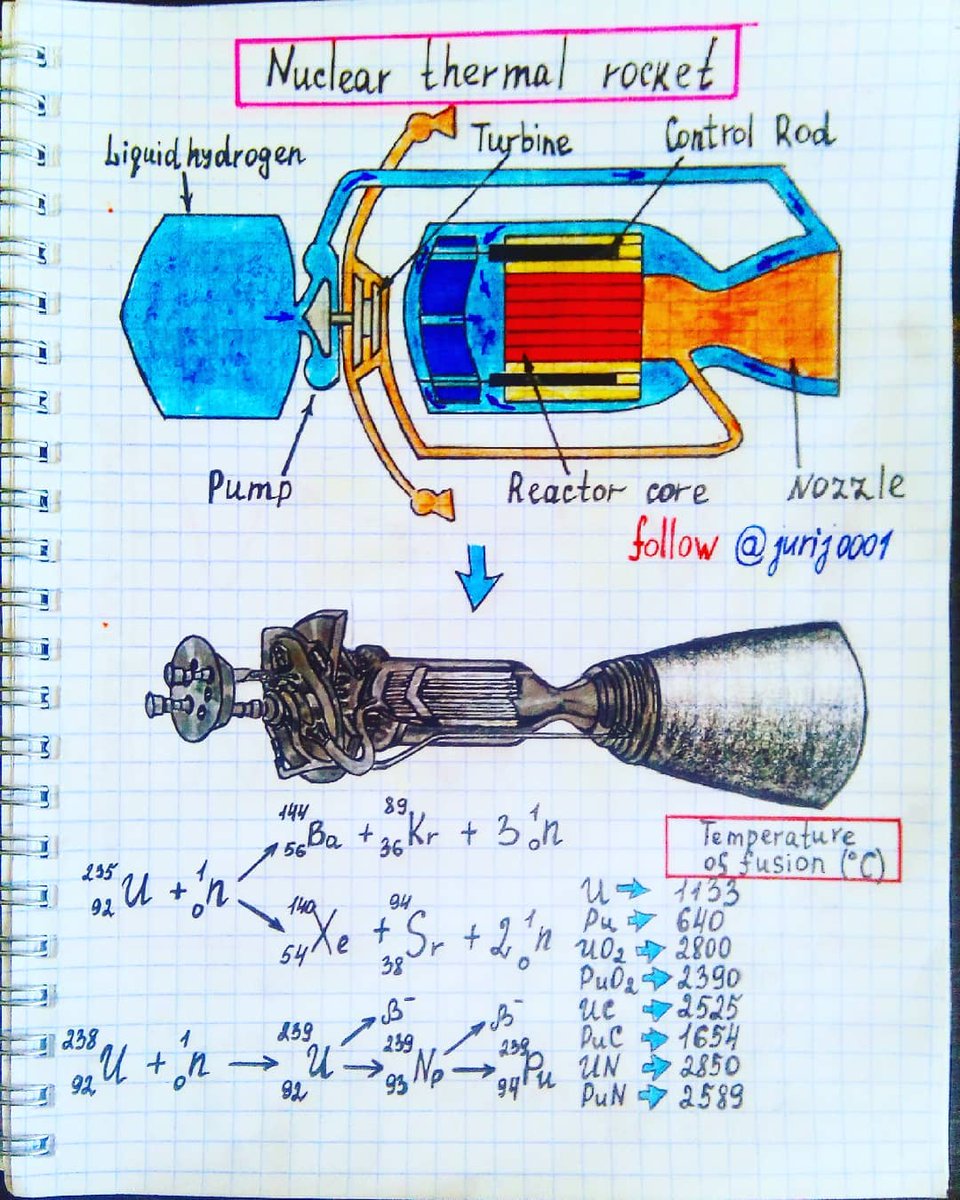 Nuclear thermal rocket
Liquid hydrogen
Turbine
Control Rod
Pump
Reactor core
Nozzle
follow @jurij0001
¹⁴⁴₅₆Ba + ⁸⁹₃₆Kr + 3 ¹₀n
²³⁵₉₂U + ¹₀n
¹⁴⁰₅₄Xe + ⁹⁴₃₈Sr + 2 ¹₀n
β⁻ β⁻
²³⁸₉₂U + ¹₀n → ²³⁹₉₂U → ²³⁹₉₃Np → ²³⁹₉₄Pu
Temperature
of fusion (°C)
U → 1133
Pu → 640
UO₂ → 2800
PuO₂ → 2390
UC → 2525
PuC → 1654
UN → 2850
PuN → 2589